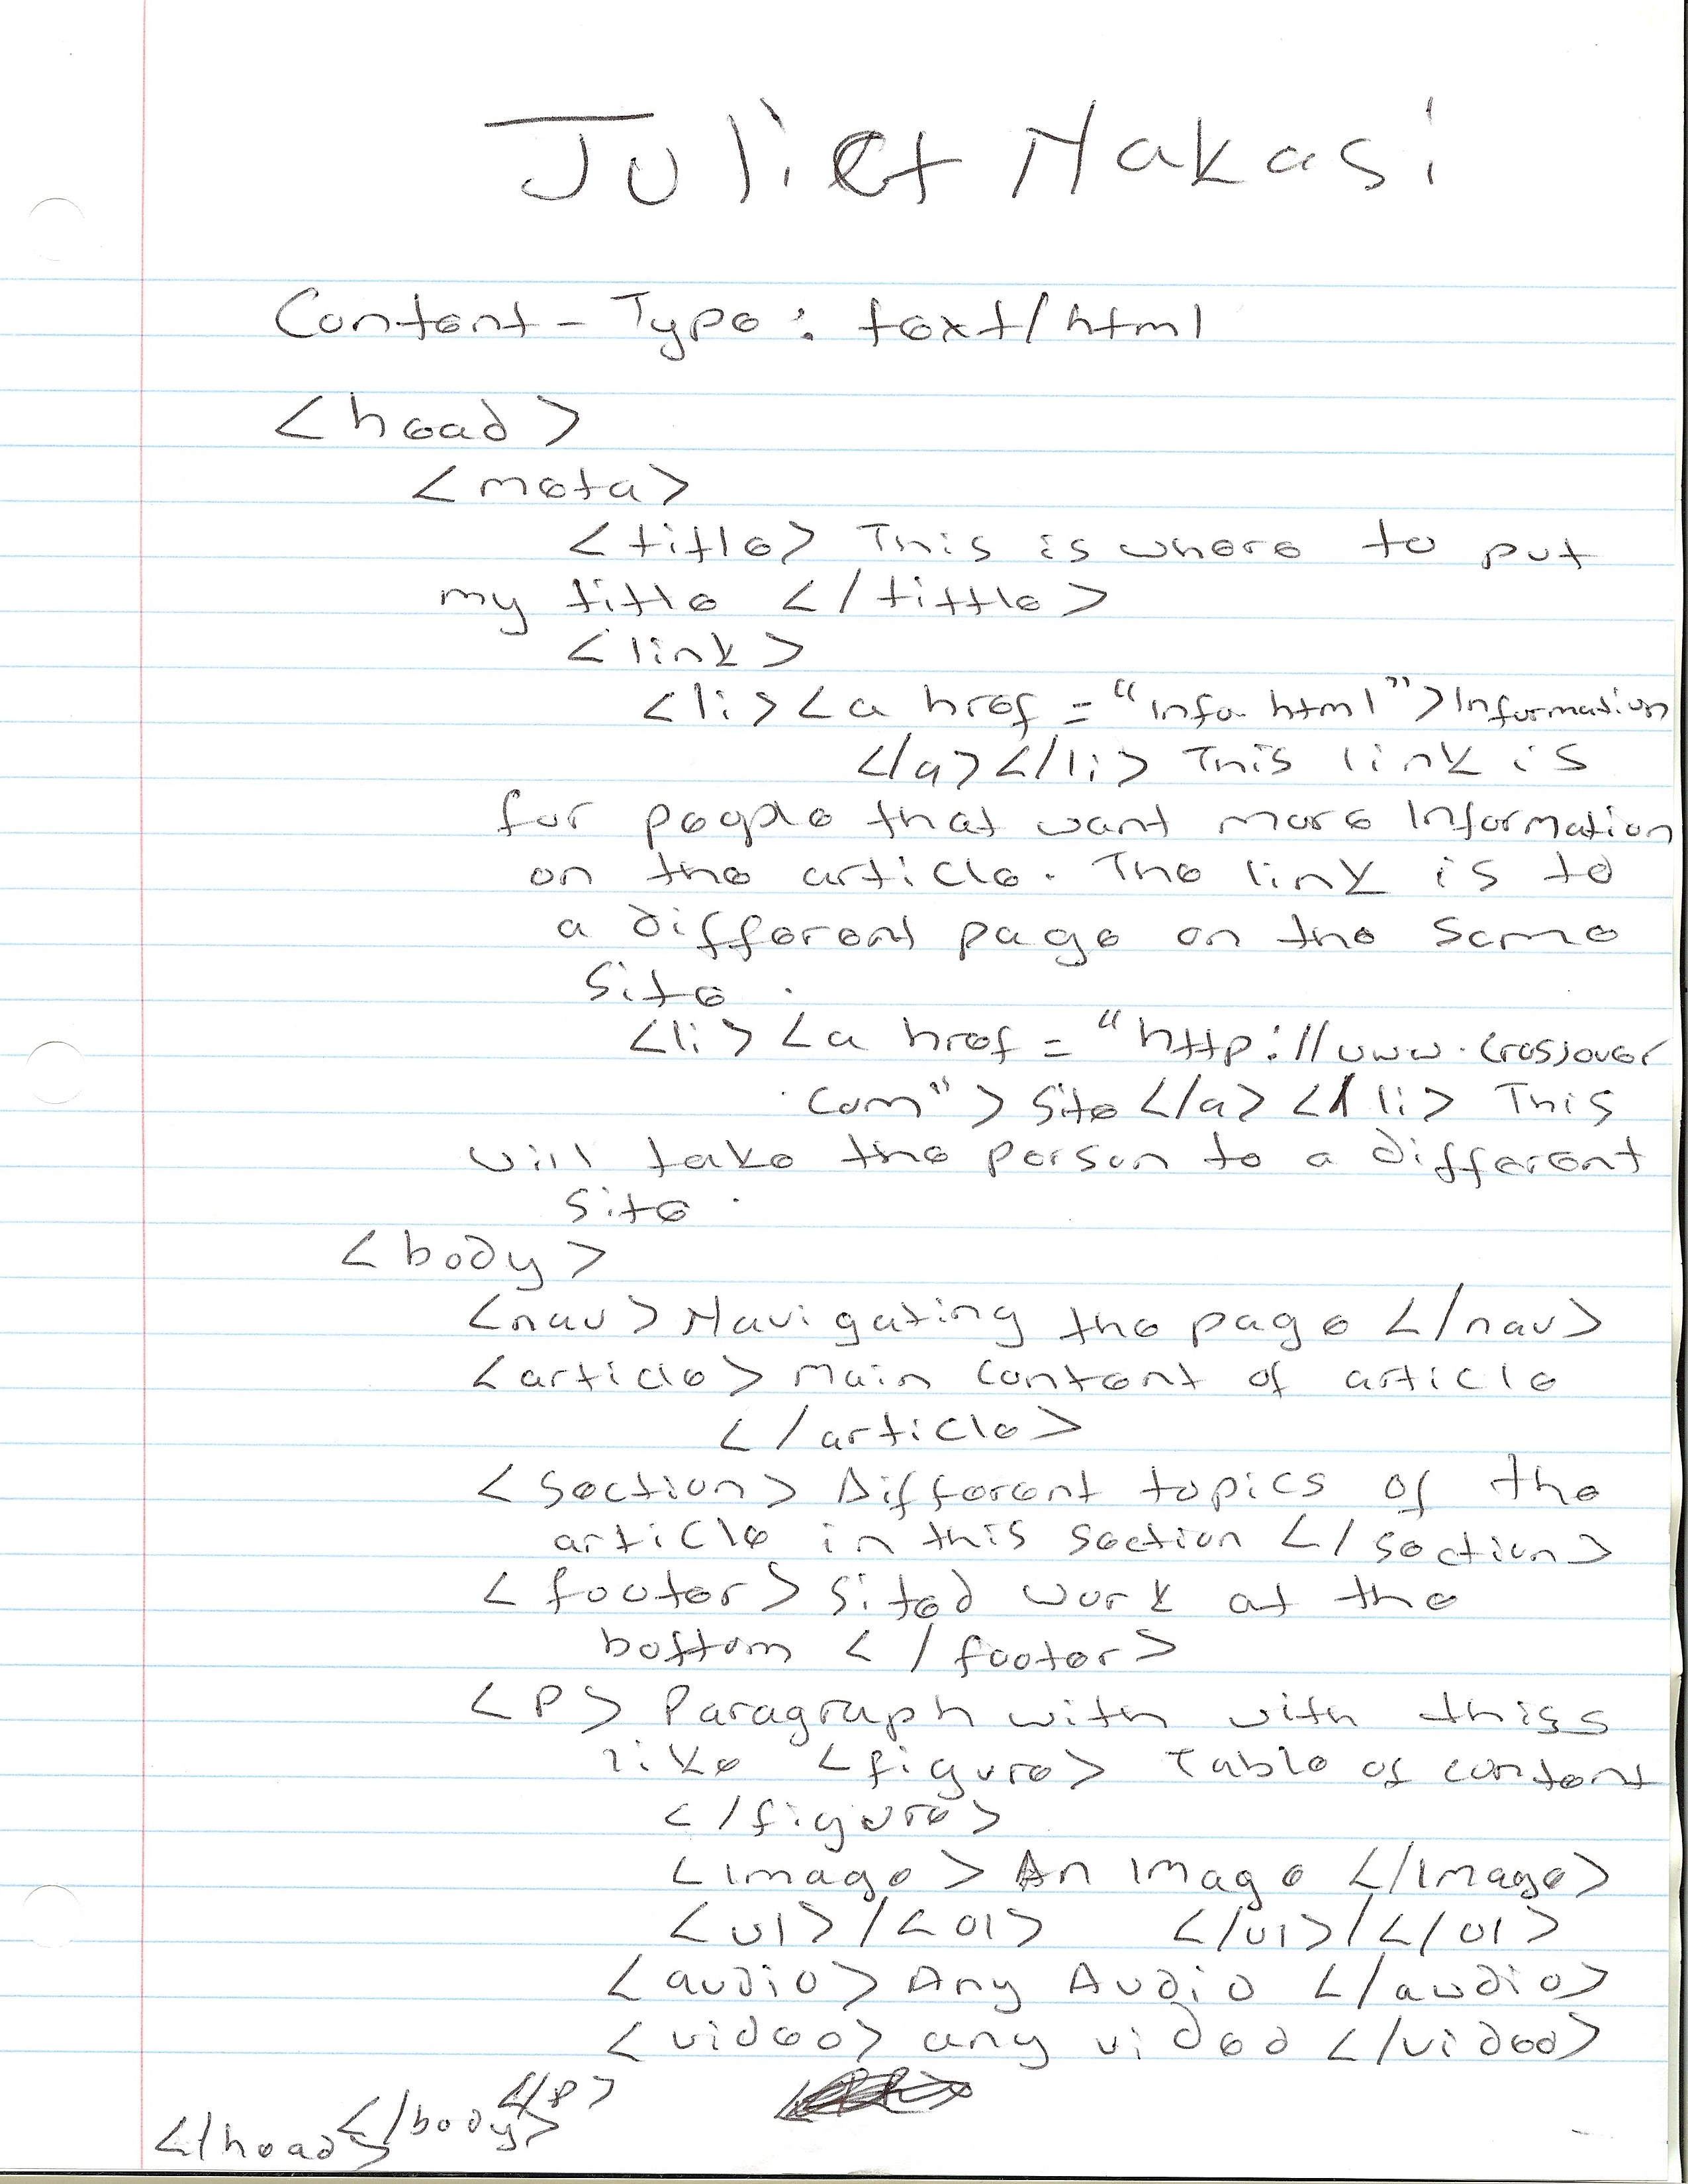 Juliet Nakasi
Content-Type: text/html
<head>
<meta>
<title> This is where to put
my title </tittle>
<link>
<li><a href = "info.html">Information
</a></li> This link is
for people that want more Information
on the article. The link is to
a different page on the same
site.
<li><a href = "http://www.crossover
.com"> Site </a> </li> This
will take the person to a different
site.
<body>
<nav> Navigating the page </nav>
<article> Main content of article
</article>
<section> Different topics of the
article in this section </section>
<footer> Sited work at the
bottom </footer>
<P> Paragraph with with thiss
like <figure> Table of content
</figure>
<Image> An Image </Image>
<ul>/<ol> </ul>/</ol>
<audio> Any Audio </audio>
<video> any video </video>
</p>
</body>
</head>